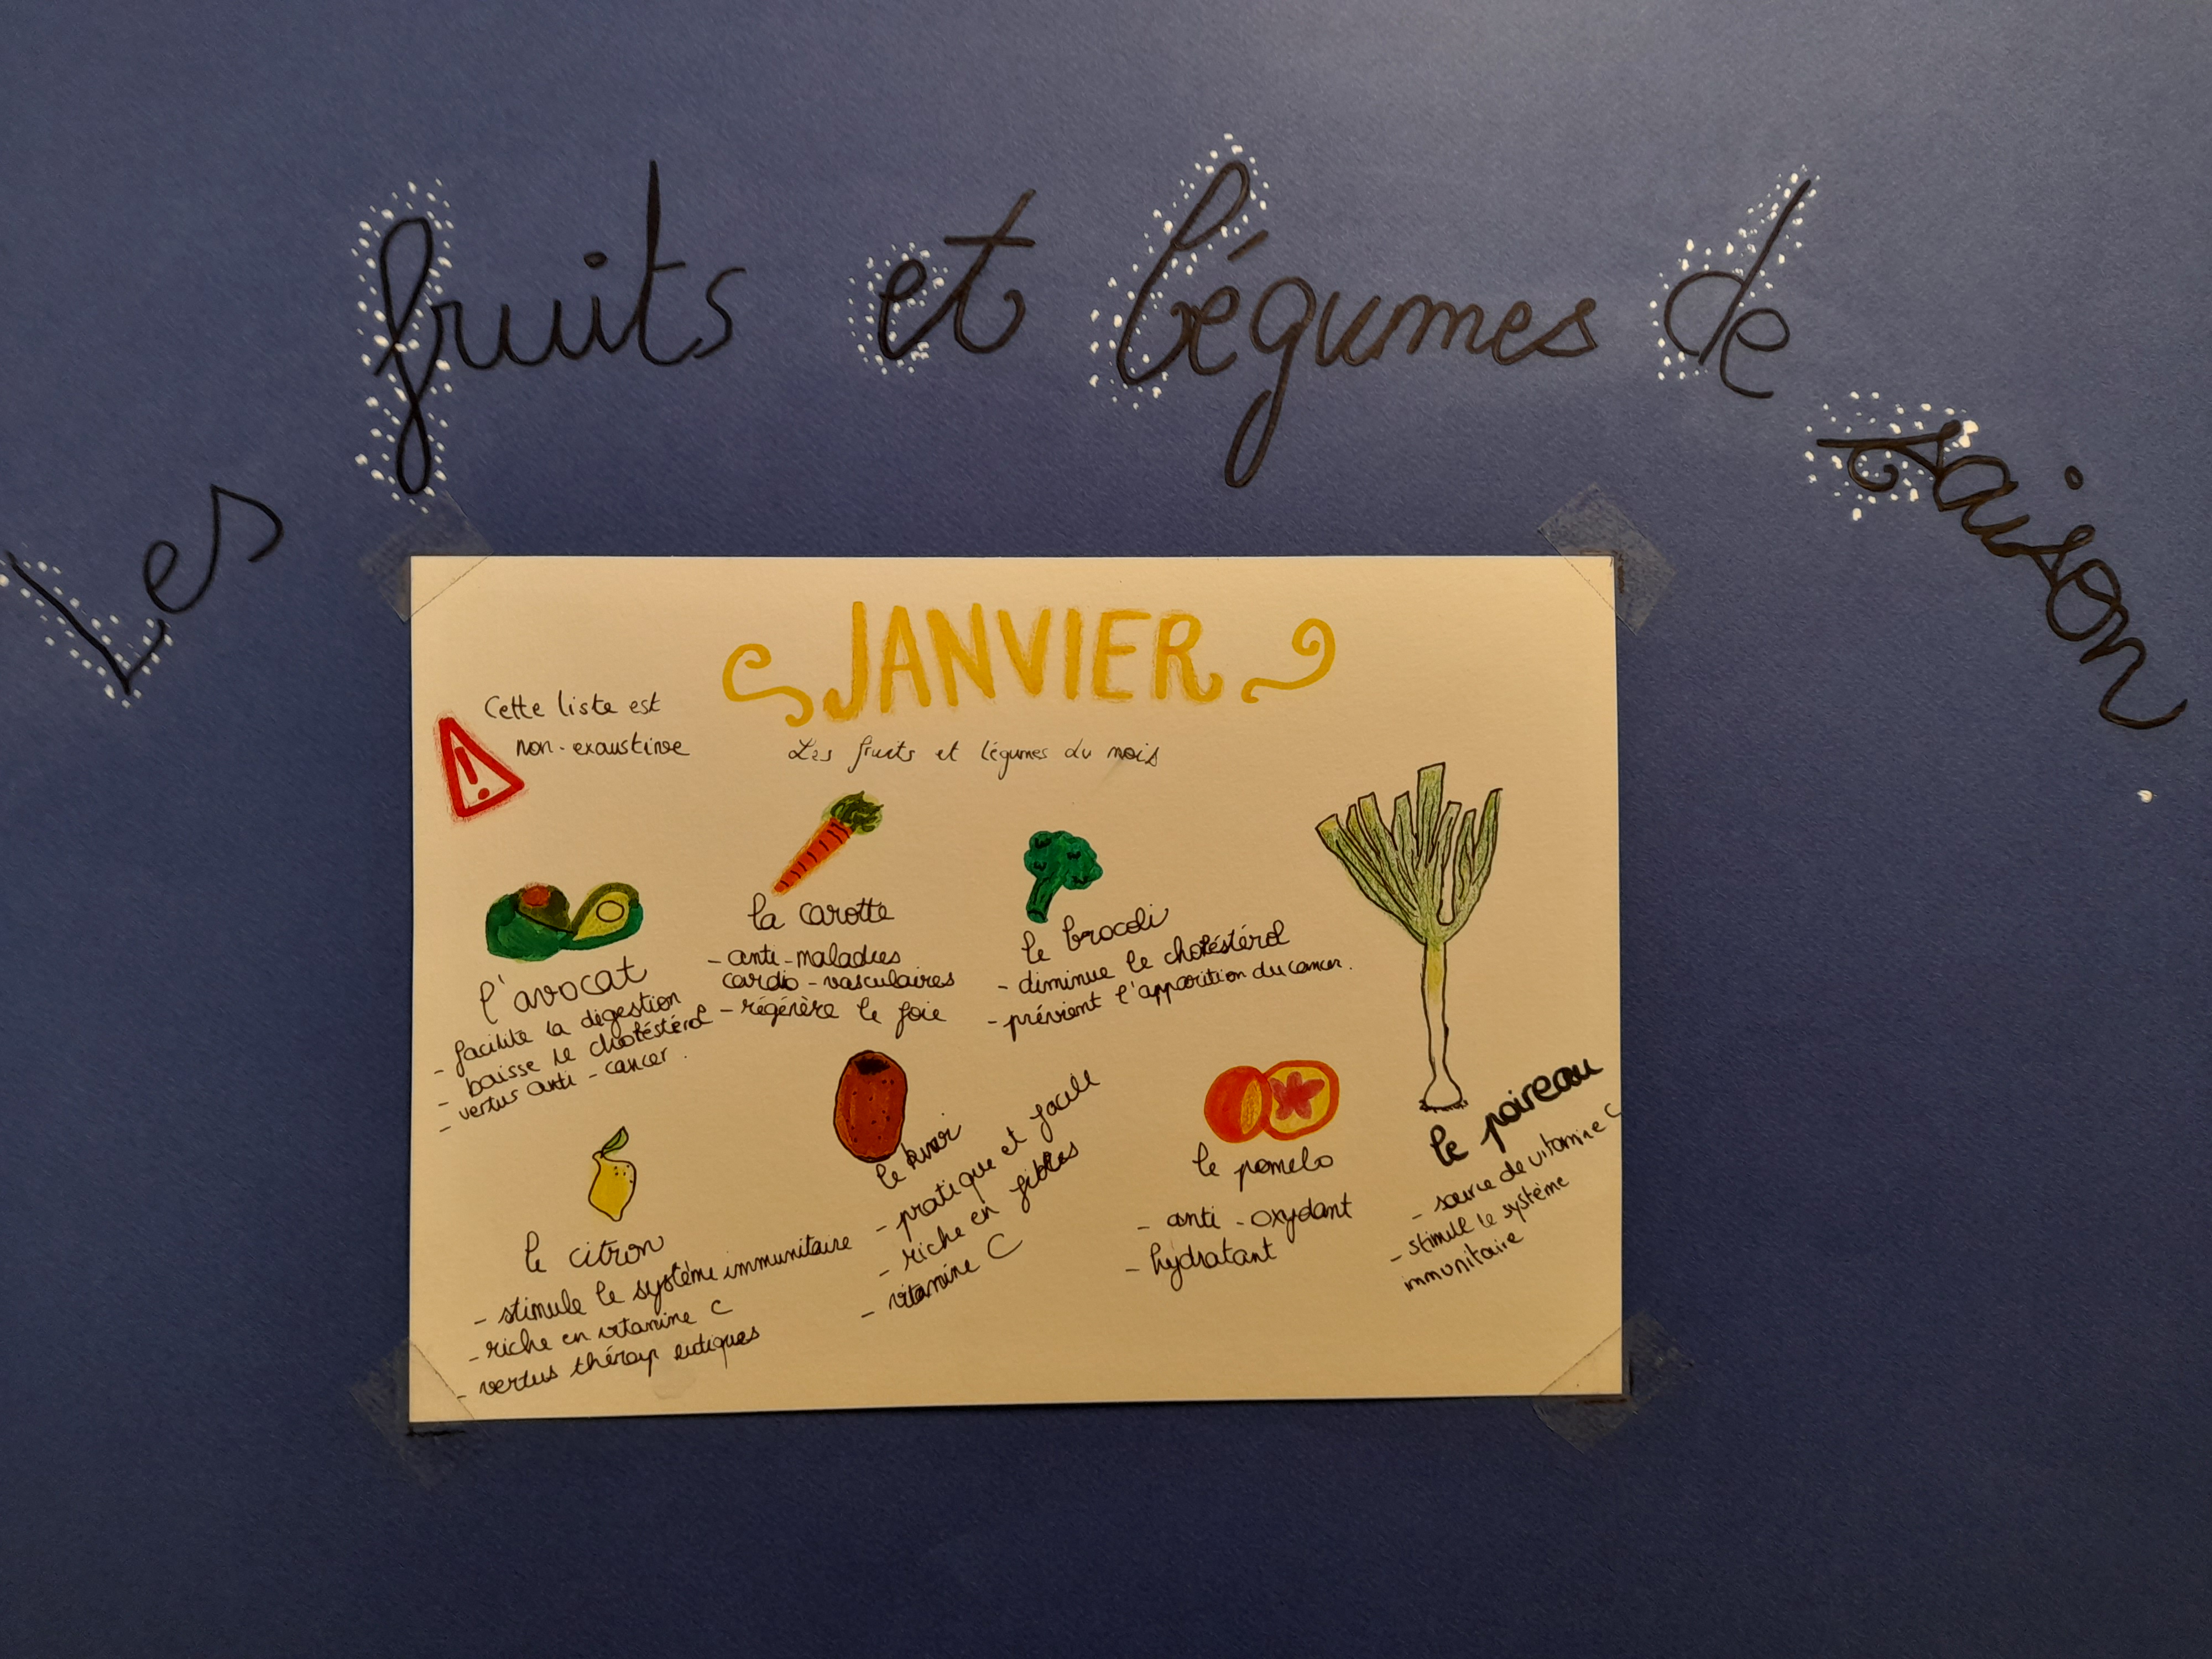 Les fruits et légumes de saison
JANVIER
Cette liste est
non-exaustive
Les fruits et légumes du mois
l'avocat
- facilite la digestion
- baisse le choléstérol
- vertus anti-cancer.
la carotte
- anti-maladies
cardio-vasculaires
- régénère le foie
le brocoli
- diminue le choléstérol
- prévient l'apparition du cancer.
le poireau
- source de vitamine C
- stimule le système
immunitaire
le citron
- stimule le système immunitaire
- riche en vitamine C
- vertus thérapeutiques
le kiwi
- pratique et facile
- riche en fibres
- vitamine C
le pomelo
- anti-oxydant
- hydratant